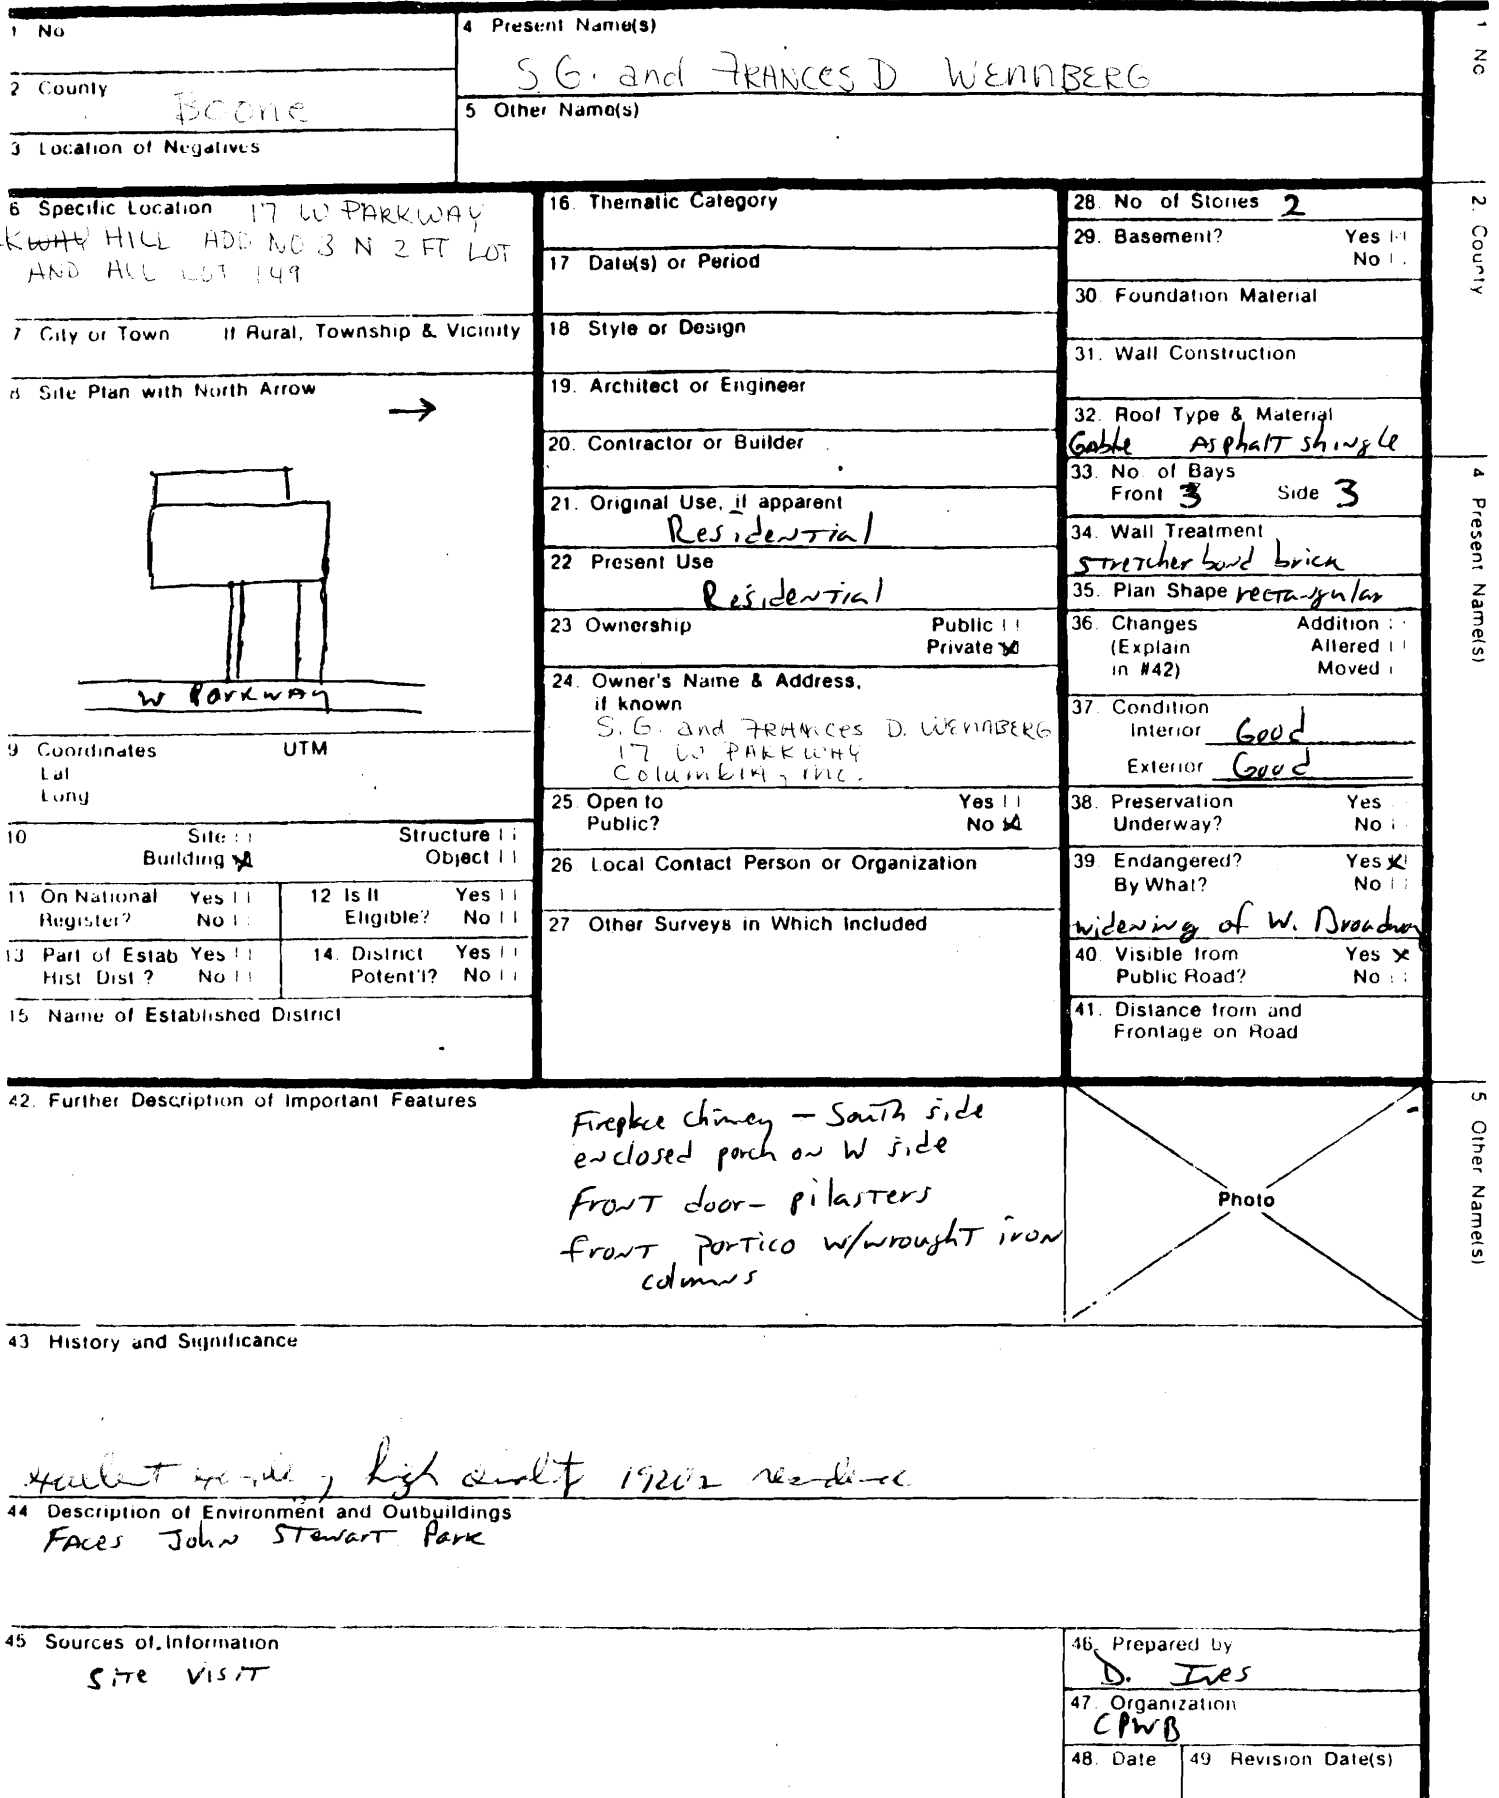 1 No
2 County
Boone
3 Location of Negatives
4 Present Name(s)
S.G. and FRANCES D WENNBERG
5 Other Name(s)
6 Specific Location 17 W PARKWAY
KWAY HILL ADD NO 3 N 2 FT LOT
AND ALL LOT 149
7 City or Town If Rural, Township & Vicinity
8 Site Plan with North Arrow
W Parkway
9 Coordinates UTM
Lat
Long
10 Site Structure
Building Object
11 On National Register? Yes No
12 Is It Eligible? Yes No
13 Part of Estab Hist Dist? Yes No
14. District Potent'l? Yes No
15 Name of Established District
16. Thematic Category
17 Date(s) or Period
18 Style or Design
19. Architect or Engineer
20. Contractor or Builder
21. Original Use, if apparent
Residential
22 Present Use
Residential
23 Ownership Public
Private
24. Owner's Name & Address,
if known
S.G. and FRANCES D. WENNBERG
17 W PARKWAY
Columbia, mc.
25. Open to Yes
Public? No
26. Local Contact Person or Organization
27 Other Surveys in Which Included
28. No of Stories 2
29. Basement? Yes
No
30. Foundation Material
31. Wall Construction
32. Roof Type & Material
Gable Asphalt shingle
33. No. of Bays
Front 3 Side 3
34. Wall Treatment
stretcher bond brick
35. Plan Shape rectangular
36. Changes Addition
(Explain Altered
in #42) Moved
37. Condition
Interior Good
Exterior Good
38. Preservation Yes
Underway? No
39. Endangered? Yes
By What? No
widening of W. Broadway
40. Visible from Yes
Public Road? No
41. Distance from and
Frontage on Road
42. Further Description of Important Features
Fireplace chimney – South side
enclosed porch on W side
Front door – pilasters
front portico w/wrought iron
columns
Photo
43 History and Significance
high quality 1920s residence
44 Description of Environment and Outbuildings
Faces John Stewart Park
45 Sources of Information
Site Visit
46. Prepared by
D. Ives
47. Organization
CPWB
48. Date
49 Revision Date(s)
1 No
2. County
4 Present Name(s)
5 Other Name(s)